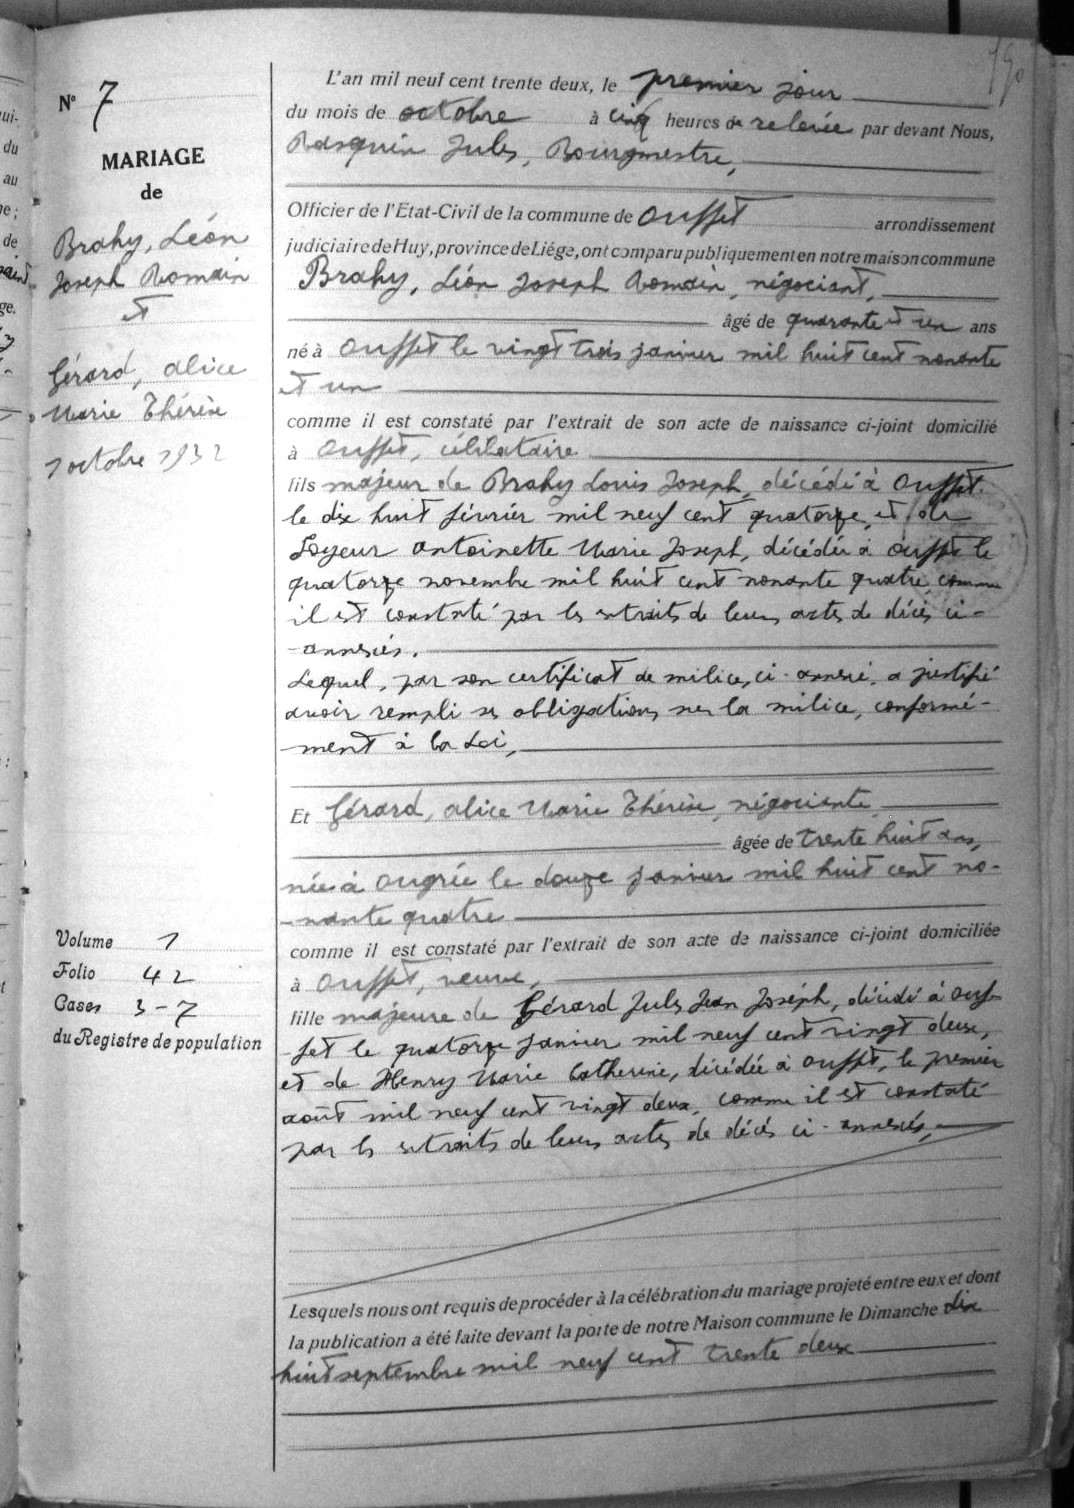 190
N° 7
MARIAGE
de
Brahy, Léon
Joseph Romain
et
Gérard, Alice
Marie Thérèse
1 octobre 1932
Volume 1
Folio 42
Cases 3-7
du Registre de population
L'an mil neuf cent trente deux, le premier jour
du mois de octobre à cinq heures de relevée par devant Nous,
Rasquin Jules, Bourgmestre,
Officier de l'Etat-Civil de la commune de Ouffet arrondissement
judiciaire de Huy, province de Liége, ont comparu publiquement en notre maison commune
Brahy, Léon Joseph Romain, négociant,
âgé de quarante et un ans
né à Ouffet le vingt trois janvier mil huit cent nonante
et un
comme il est constaté par l'extrait de son acte de naissance ci-joint domicilié
à Ouffet, célibataire
fils majeur de Brahy Louis Joseph, décédé à Ouffet
le dix huit février mil neuf cent quatorze, et de
Loyeur Antoinette Marie Joseph, décédée à Ouffet le
quatorze novembre mil huit cent nonante quatre, comme
il est constaté par les extraits de leurs actes de décès ci-
-annexés.
Lequel, par son certificat de milice, ci-annexé, a justifié
avoir rempli ses obligations sur la milice, conformé-
-ment à la Loi,
Et Gérard, Alice Marie Thérèse, négociante,
âgée de trente huit ans,
née à Ougrée le douze janvier mil huit cent no-
-nante quatre
comme il est constaté par l'extrait de son acte de naissance ci-joint domiciliée
à Ouffet, veuve,
fille majeure de Gérard Jules Jean Joseph, décédé à Ouf-
-fet le quatorze janvier mil neuf cent vingt deux,
et de Henry Marie Catherine, décédée à Ouffet, le premier
août mil neuf cent vingt deux, comme il est constaté
par les extraits de leurs actes de décès ci-annexés,
Lesquels nous ont requis de procéder à la célébration du mariage projeté entre eux et dont
la publication a été faite devant la porte de notre Maison commune le Dimanche dix
huit septembre mil neuf cent trente deux